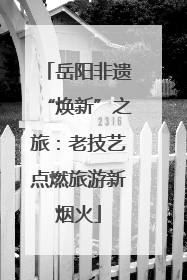 「岳阳非遗
“焕新”之
旅：老技艺
点燃旅游新
烟火」
2316